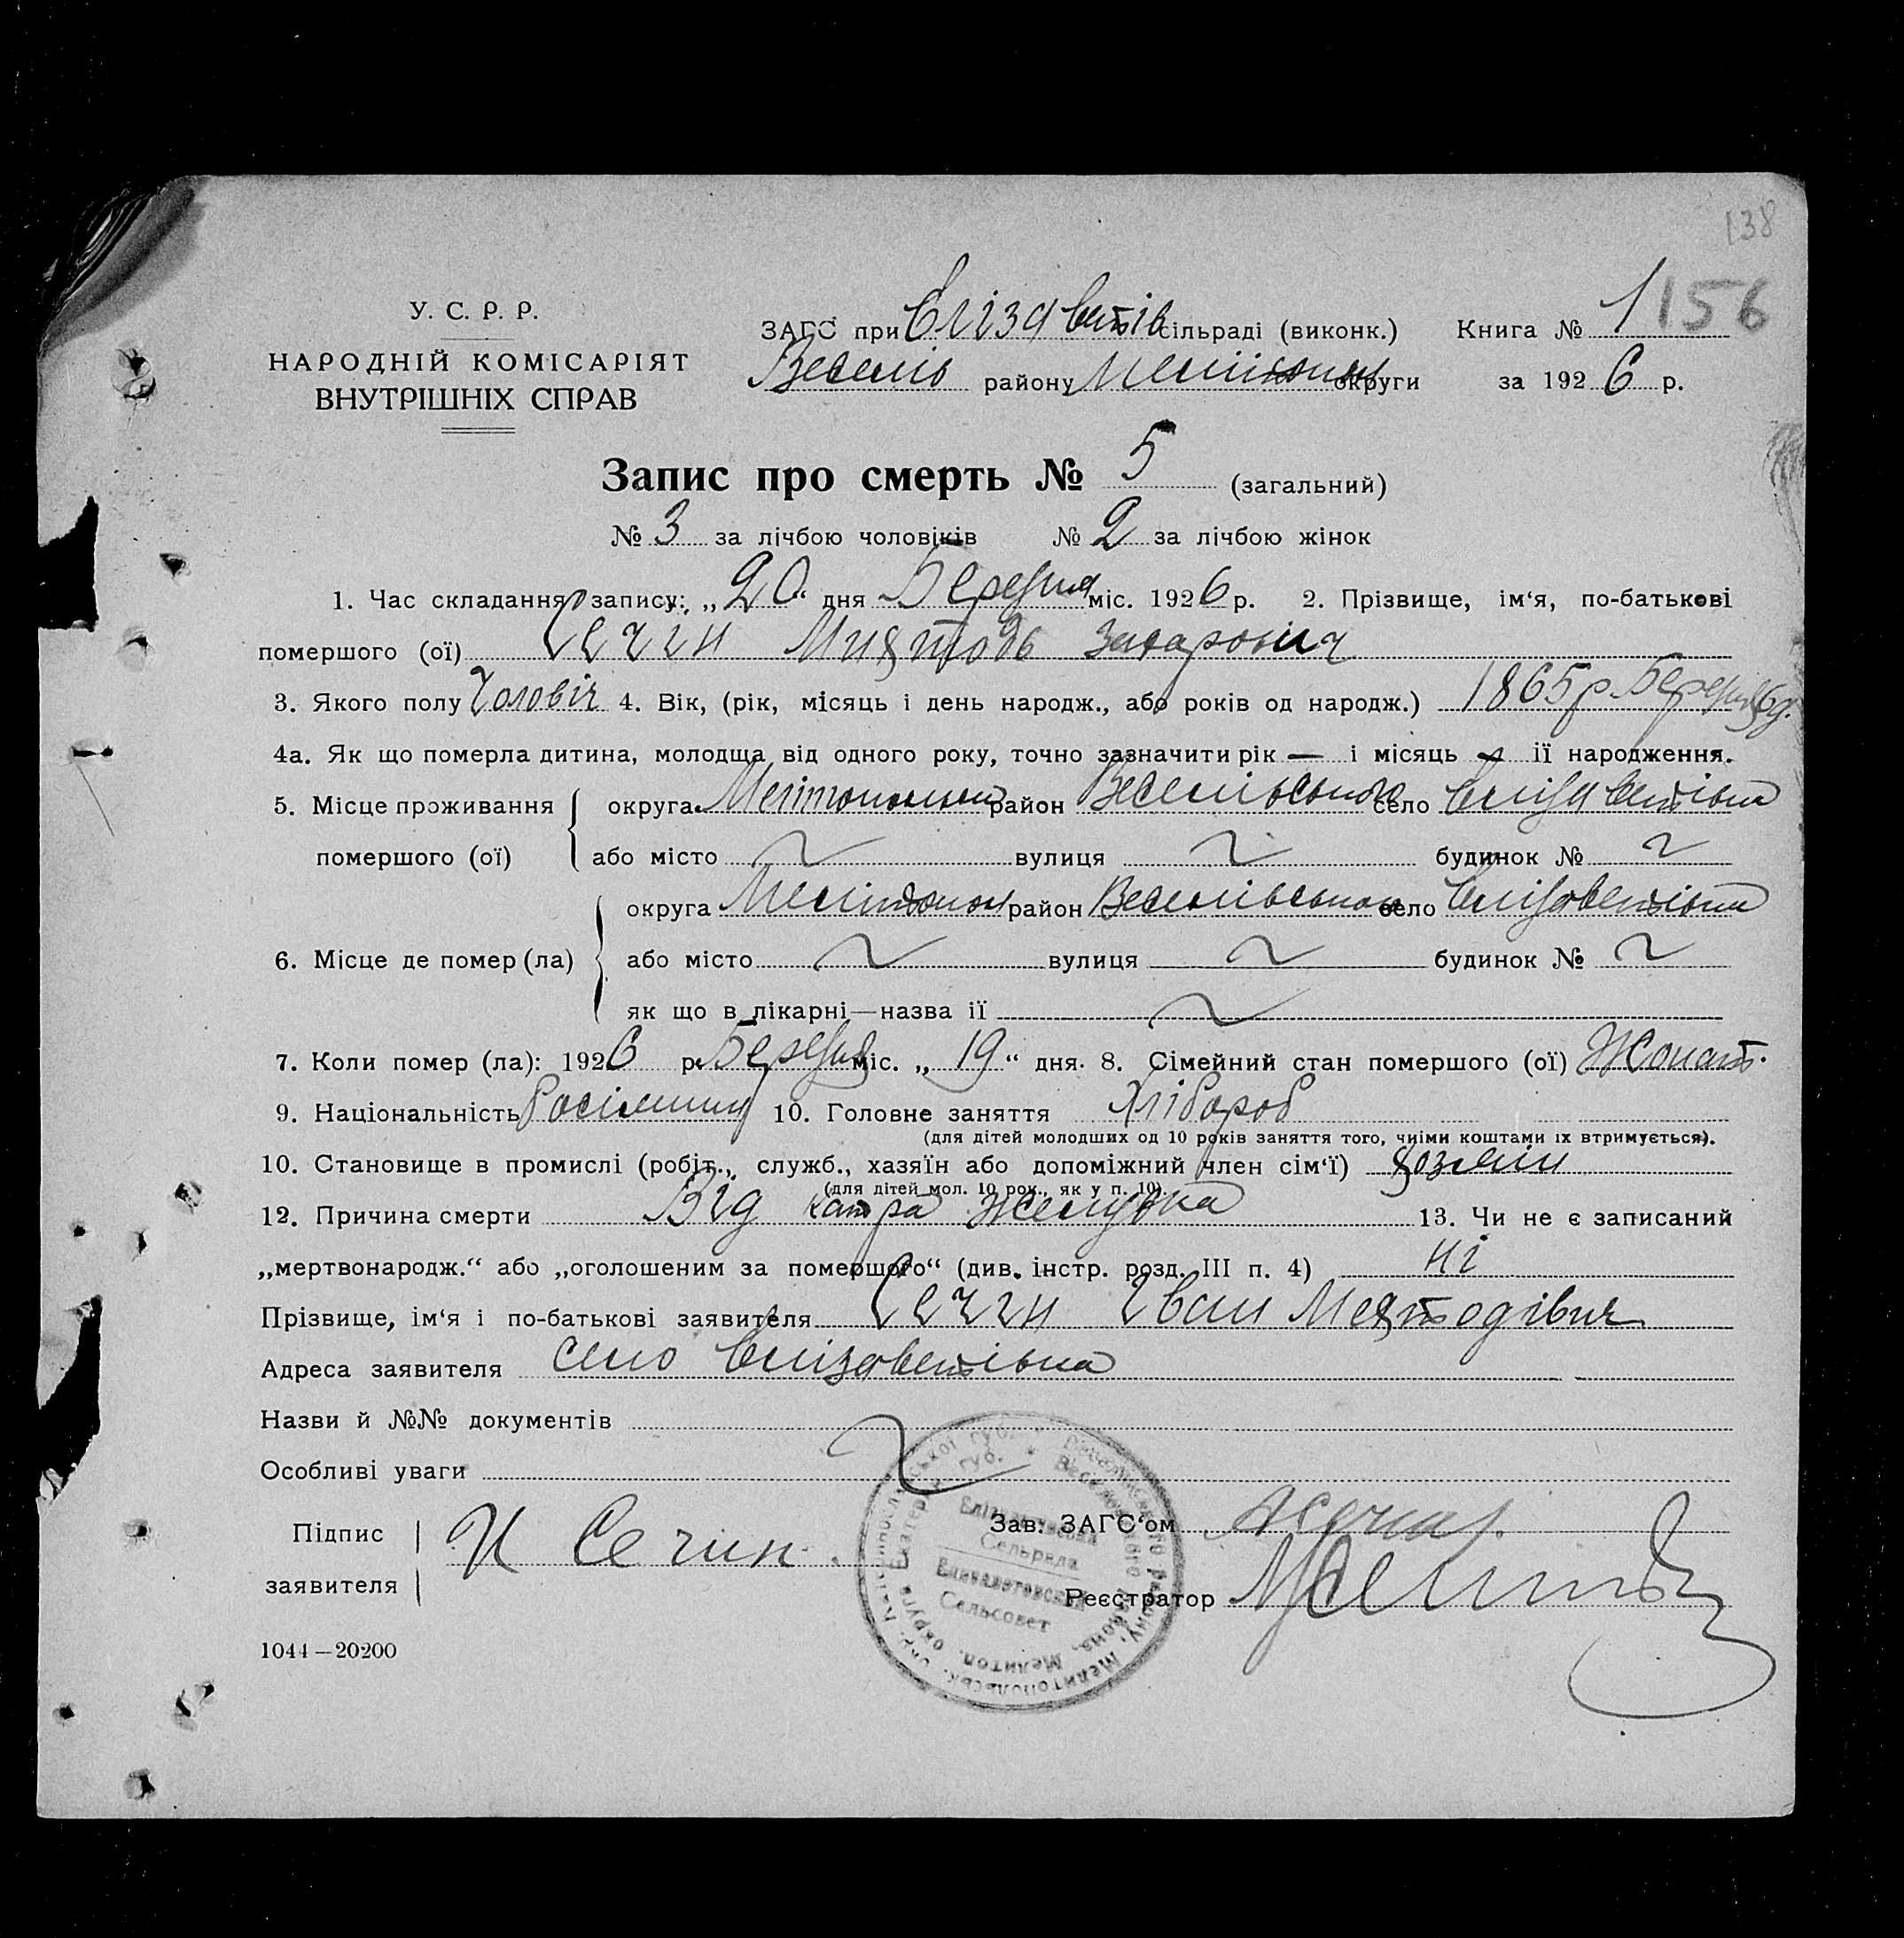 138
У. С. Р. Р.
НАРОДНІЙ КОМІСАРІЯТ
ВНУТРІШНІХ СПРАВ
ЗАГС при Єлізаветів сільраді (виконк.) Книга № 1 156
Веселів району Меліт округи за 1926 р.
Запис про смерть № 5 (загальний)
№ 3 за лічбою чоловіків № 2 за лічбою жінок
1. Час складання запису: „20“ дня Березня міс. 1926 р. 2. Прізвище, ім‘я, по-батькові
помершого (ої) Сечин Захарович
3. Якого полу Чоловіч 4. Вік, (рік, місяць і день народж., або років од народж.) 1865 р Березня
4а. Як що померла дитина, молодща від одного року, точно зазначити рік — і місяць — ії народження.
5. Місце проживання округа Мелітопольська район Веселівського село Єлізаветівка
помершого (ої) або місто вулиця будинок №
округа Мелітопол район Веселівського село Єлізаветівка
6. Місце де помер (ла) або місто вулиця будинок №
як що в лікарні—назва ії
7. Коли помер (ла): 1926 р. Березня міс. „19“ дня. 8. Сімейний стан помершого (ої) Жонат.
9. Національність 10. Головне заняття Хлібороб
(для дітей молодших од 10 років заняття того, чиїми коштами їх втримується).
10. Становище в промислі (робіт., служб., хазяїн або допоміжний член сім‘ї) хозяїн
(для дітей мол. 10 рок., як у п. 10).
12. Причина смерти Від желудка 13. Чи не є записаний
„мертвонародж.“ або „оголошеним за помершого“ (див. інстр. розд. III п. 4) ні
Прізвище, ім‘я і по-батькові заявителя Сечин Іван
Адреса заявителя село Єлізаветівка
Назви й №№ документів
Особливі уваги
Підпис заявителя И Сечин.
Зав. ЗАГС‘ом
Реєстратор
Сельрада
Сельсовет
1044—20200